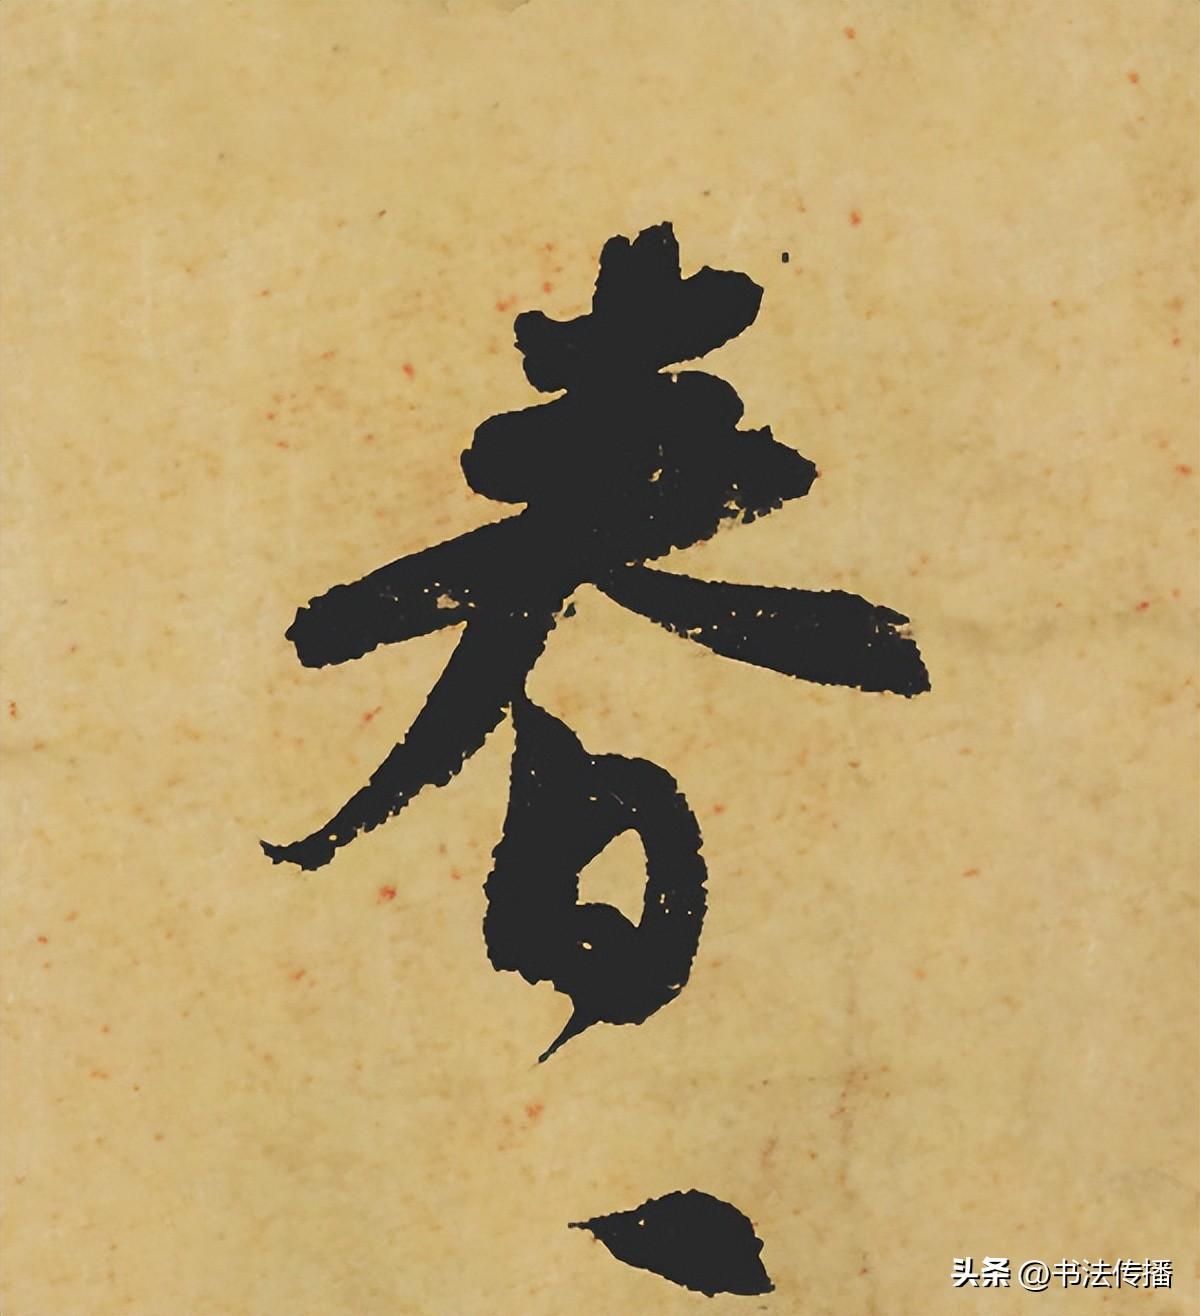 春
头条 @书法传播